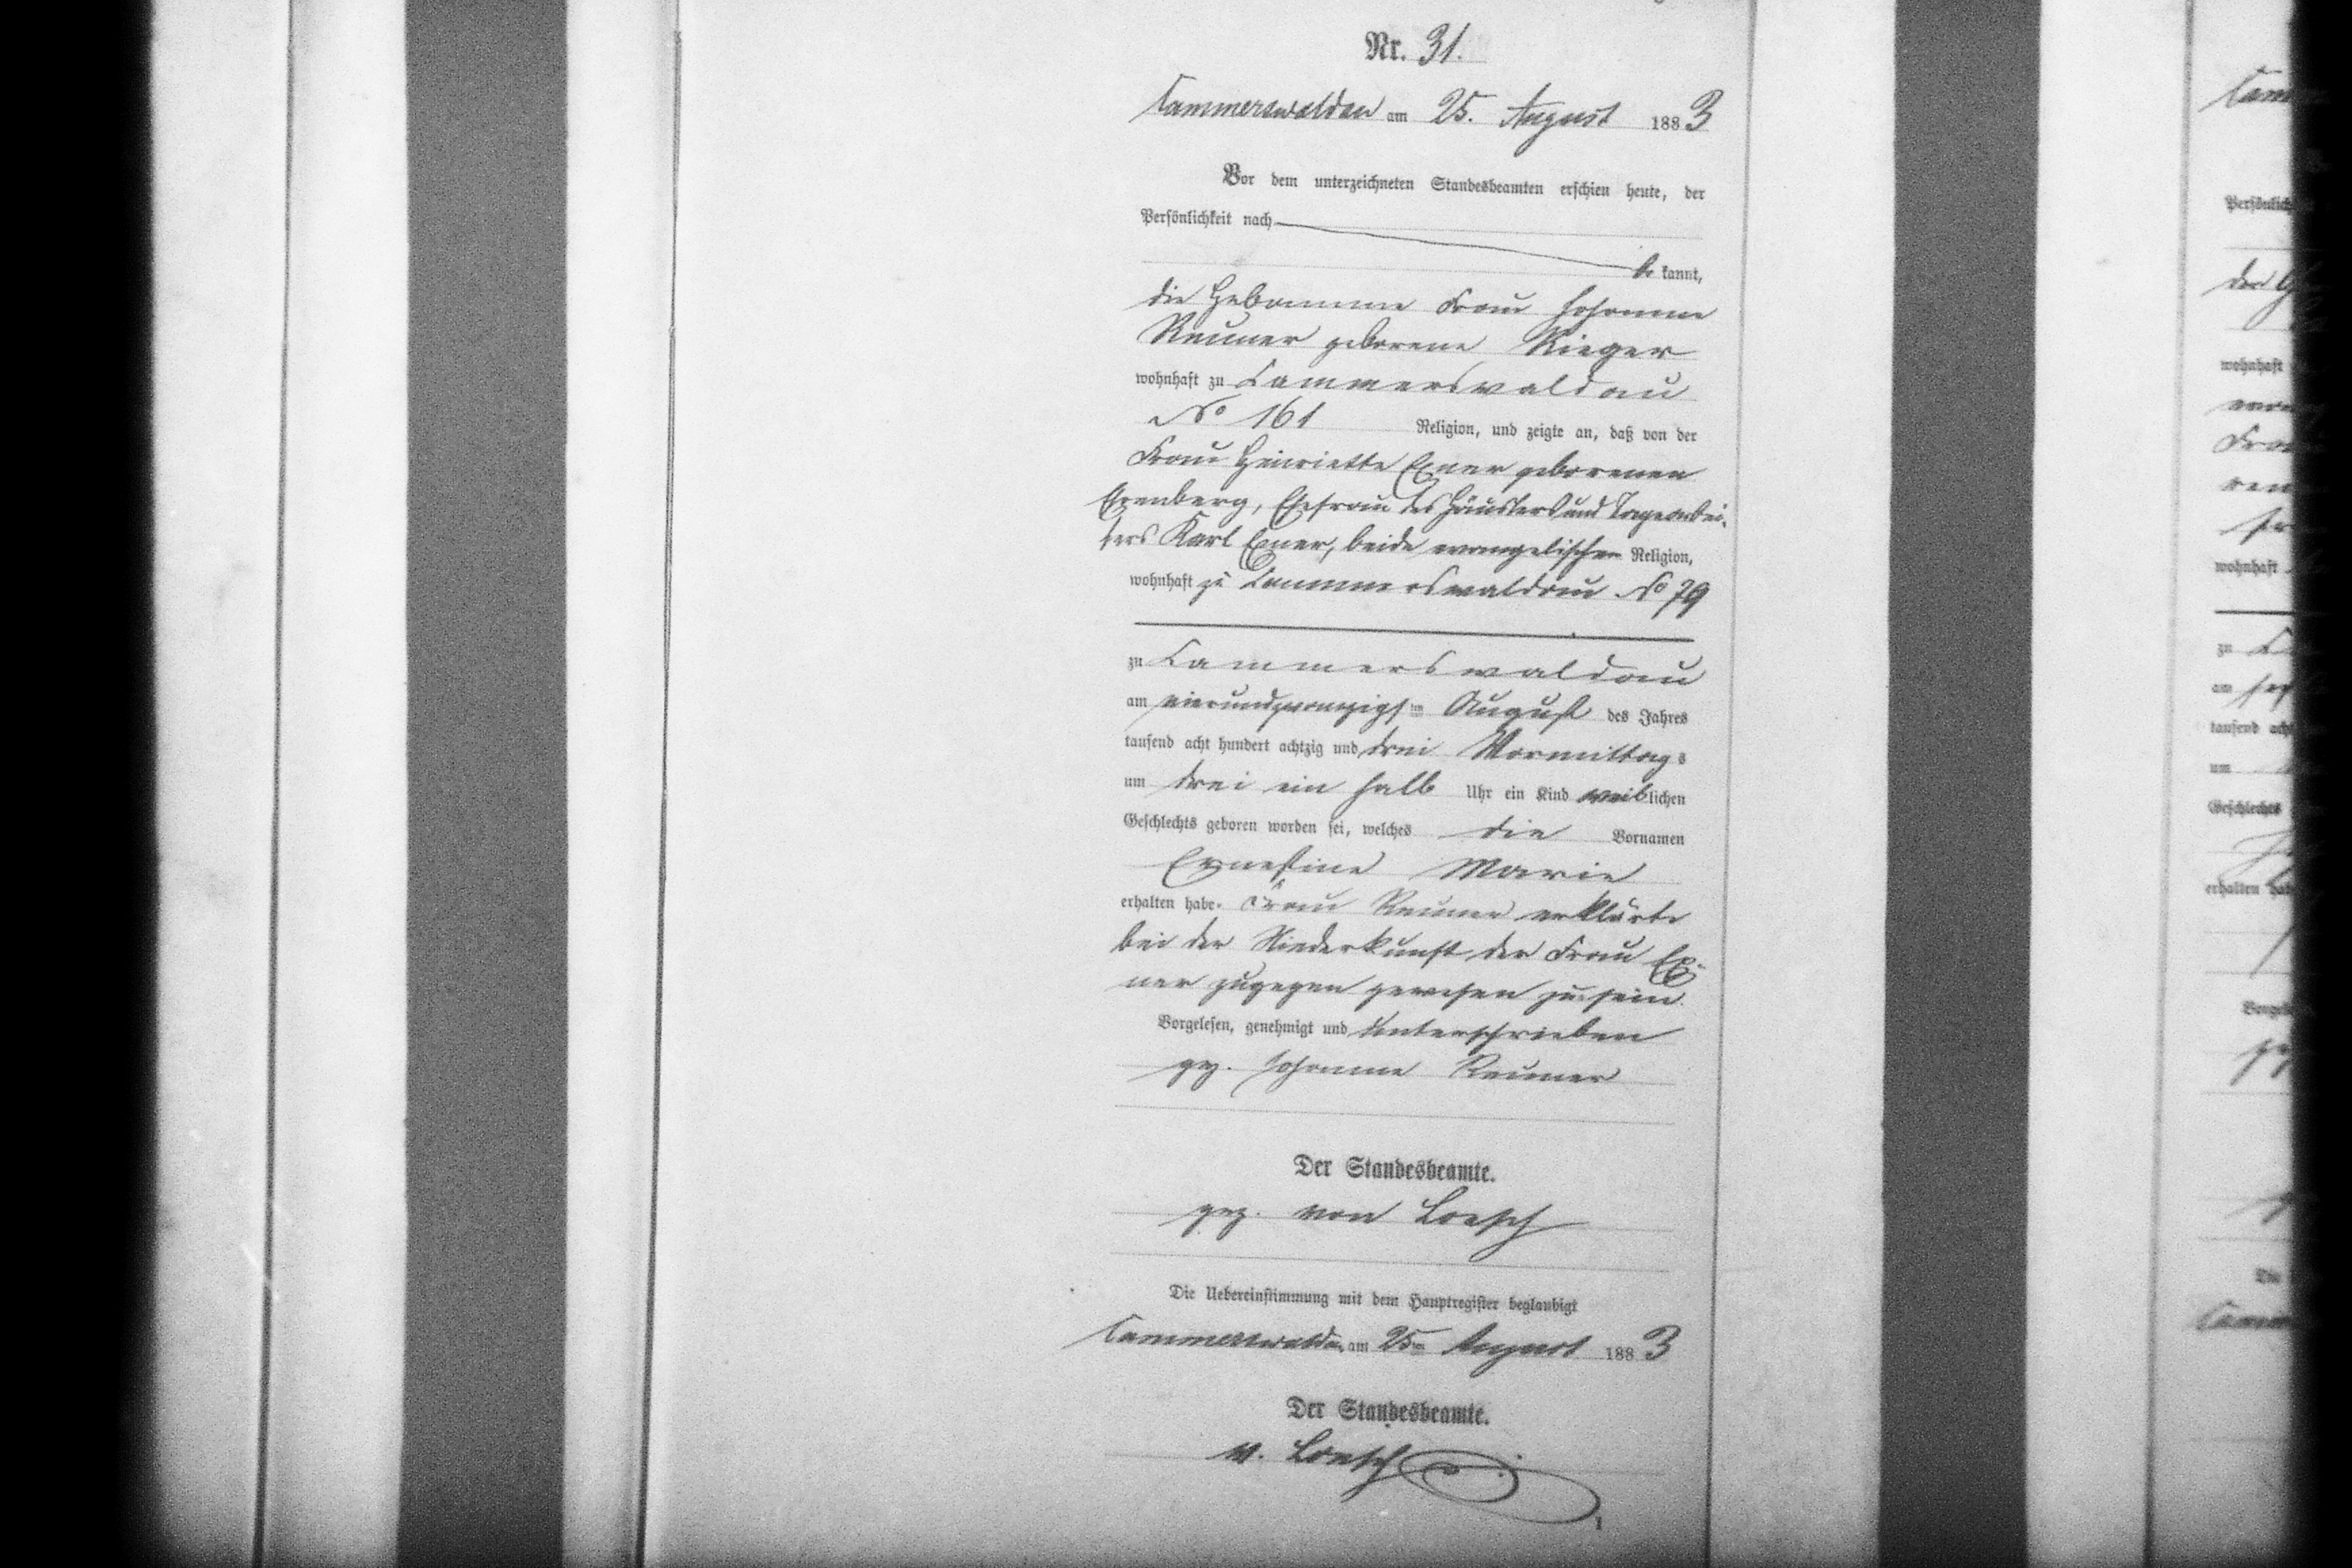 Nr. 31.
Cammerswaldau am 25. August 1883
Vor dem unterzeichneten Standesbeamten erschien heute, der
Persönlichkeit nach
be kannt,
die Hebamme Frau Johanne
Reuner geborene Rieger
wohnhaft zu Cammerswaldau
No 161 Religion, und zeigte an, daß von der
Frau Henriette Exner geborenen
Exenberg, Ehefrau des Häuslers und Tagearbei-
ters Karl Exner, beide evangelischen Religion,
wohnhaft zu Cammerswaldau No 79
zu Cammerswaldau
am vierundzwanzigsten August des Jahres
tausend acht hundert achtzig und drei Vormittags
um drei ein halb Uhr ein Kind weiblichen
Geschlechts geboren worden sei, welches die Vornamen
Ernestine Marie
erhalten habe. Frau Reuner erklärte
bei der Niederkunft der Frau Ex-
ner zugegen gewesen zu sein.
Vorgelesen, genehmigt und unterschrieben
gez. Johanne Reuner
Der Standesbeamte.
gez. von Loesch
Die Uebereinstimmung mit dem Hauptregister beglaubigt
Cammerswaldau am 25ten August 1883
Der Standesbeamte.
v. Loesch
Persönlich
wohnhaft
wohnhaft
zu
am
tausend
um
Geschlechts
erhalten
Die